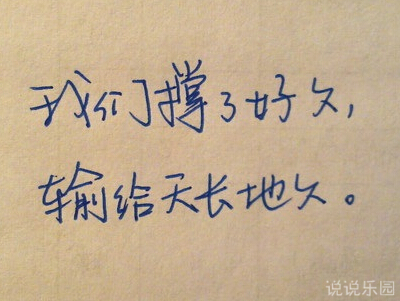 我们撑了好久，
输给天长地久。
说说乐园